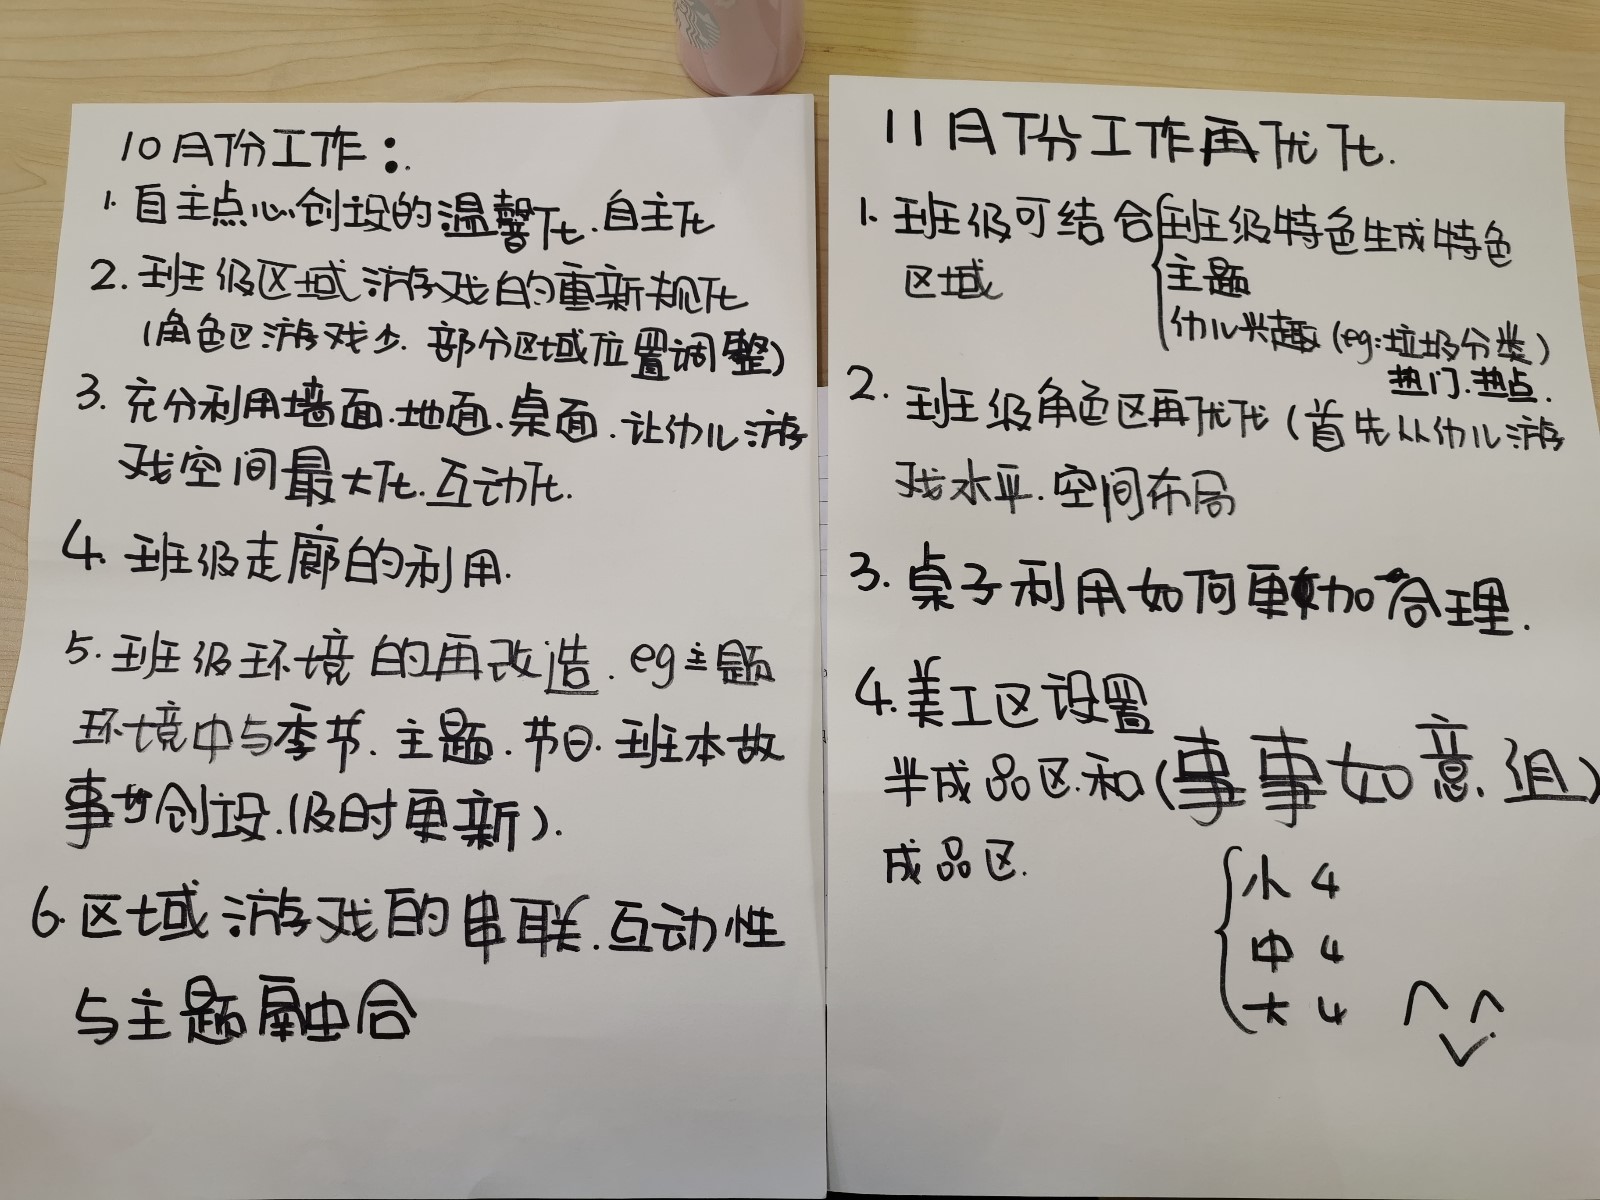 10月份工作:.
1. 自主点心创设的温馨化.自主化
2. 班级区域游戏的重新规化
(角色区游戏少. 部分区域位置调整)
3. 充分利用墙面.地面.桌面.让幼儿游
戏空间最大化.互动化.
4. 班级走廊的利用.
5. 班级环境的再改造. eg主题
环境中与季节.主题.节日.班本故
事的创设.(及时更新).
6. 区域游戏的串联.互动性
与主题融合
11月份工作再优化.
1. 班级可结合{班级特色生成特色
区域 主题
幼儿兴趣(eg:垃圾分类)
热门.热点.
2. 班级角色区再优化(首先从幼儿游
戏水平.空间布局
3. 桌子利用如何更加合理.
4. 美工区设置
半成品区.和(事事如意.组)
成品区.
小 4
中 4
大 4